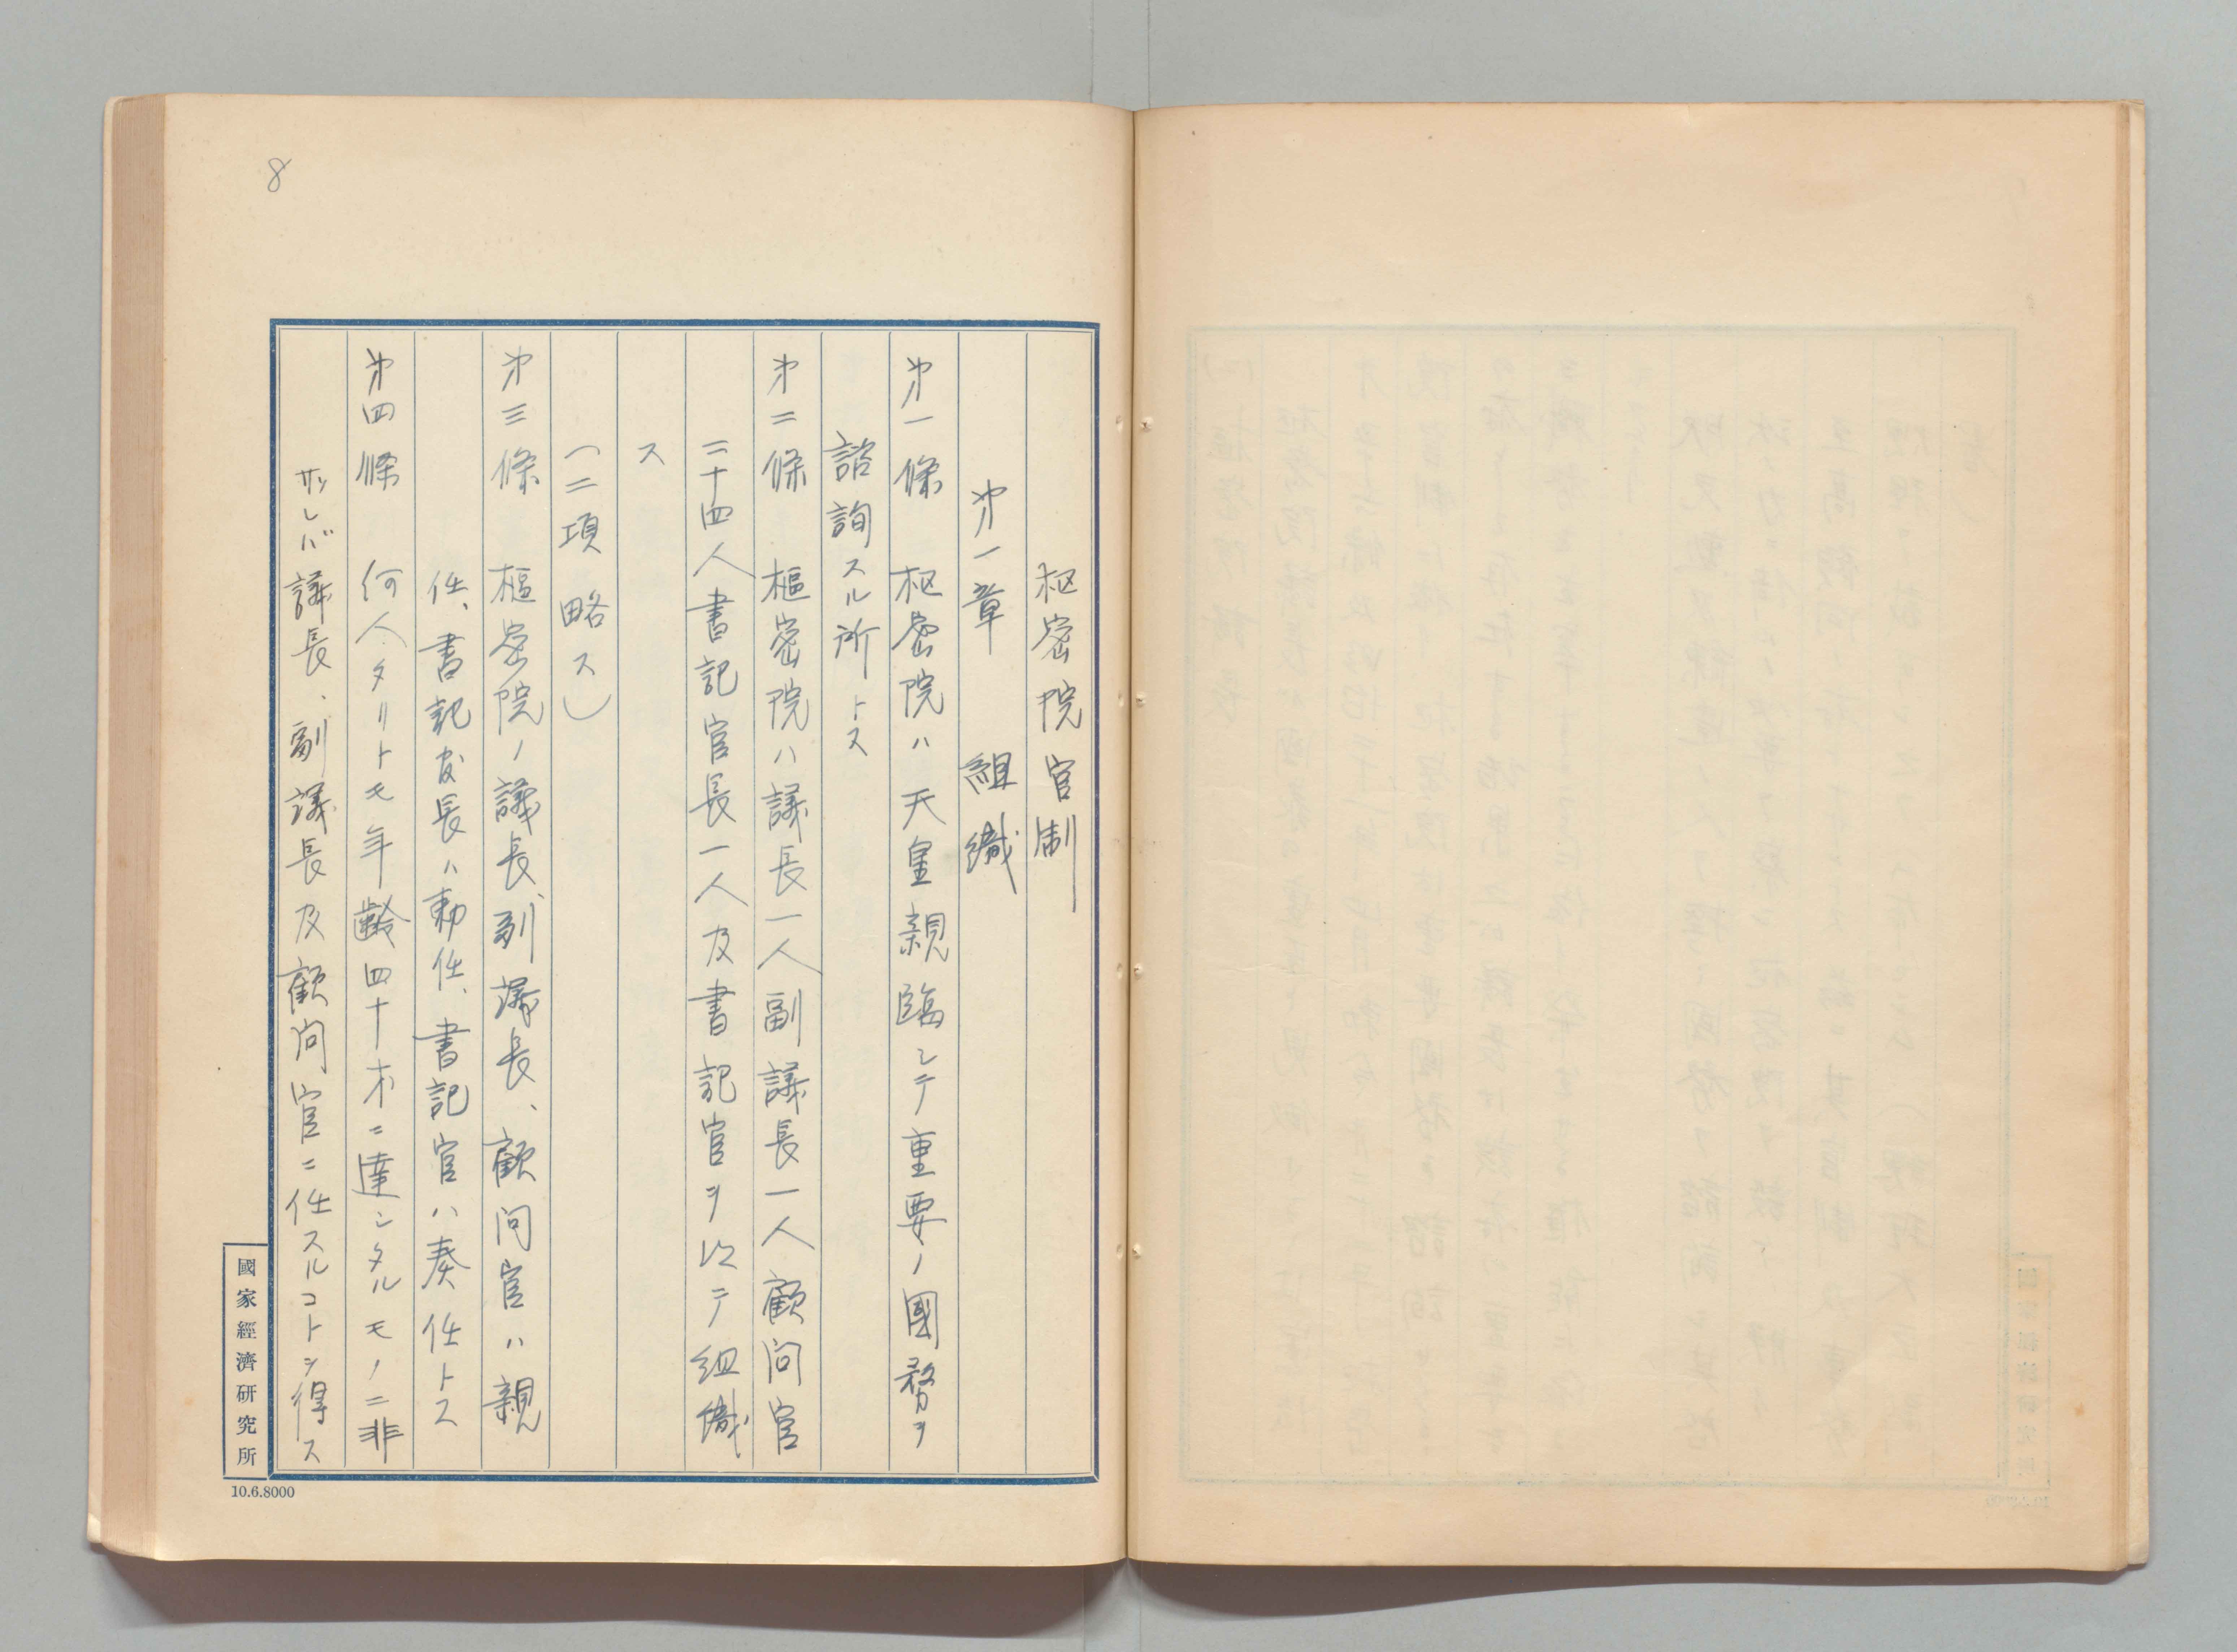 8
枢密院官制
第一章 組織
第一條 枢密院ハ天皇親臨シテ重要ノ國務ヲ
諮詢スル所トス
第二條 樞密院ハ議長一人副議長一人顧問官
二十四人書記官長一人及書記官ヲ以テ組織
ス
(二項略ス)
第三條 樞密院ノ議長、副議長、顧問官ハ親
任、書記官長ハ勅任、書記官ハ奏任トス
第四條 何人タリトモ年齢四十才ニ達シタルモノニ非
サレバ議長、副議長及顧問官ニ任スルコトヲ得ス
國家經濟研究所
10.6.8000